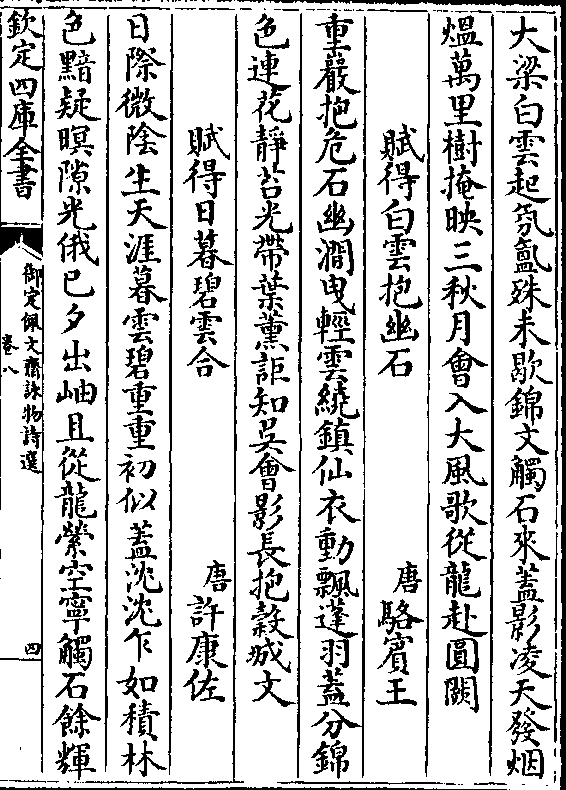 大梁白雲起氛氳殊未歇錦文觸石來蓋影凌天發烟
熅萬里樹掩映三秋月會入大風歌從龍赴圓闕
賦得白雲抱幽石
唐駱賓王
重巖抱危石幽澗曳輕雲繞鎮仙衣動飄蓬羽蓋分錦
色連花靜苔光帶葉薰詎知吳會影長抱穀城文
賦得日暮碧雲合
唐許康佐
日際微陰生天涯暮雲碧重重初似蓋沈沈乍如積林
色黯疑暝隙光俄已夕出岫且從龍縈空寧觸石餘輝
欽定四庫全書
御定佩文齋詠物詩選
卷八
四